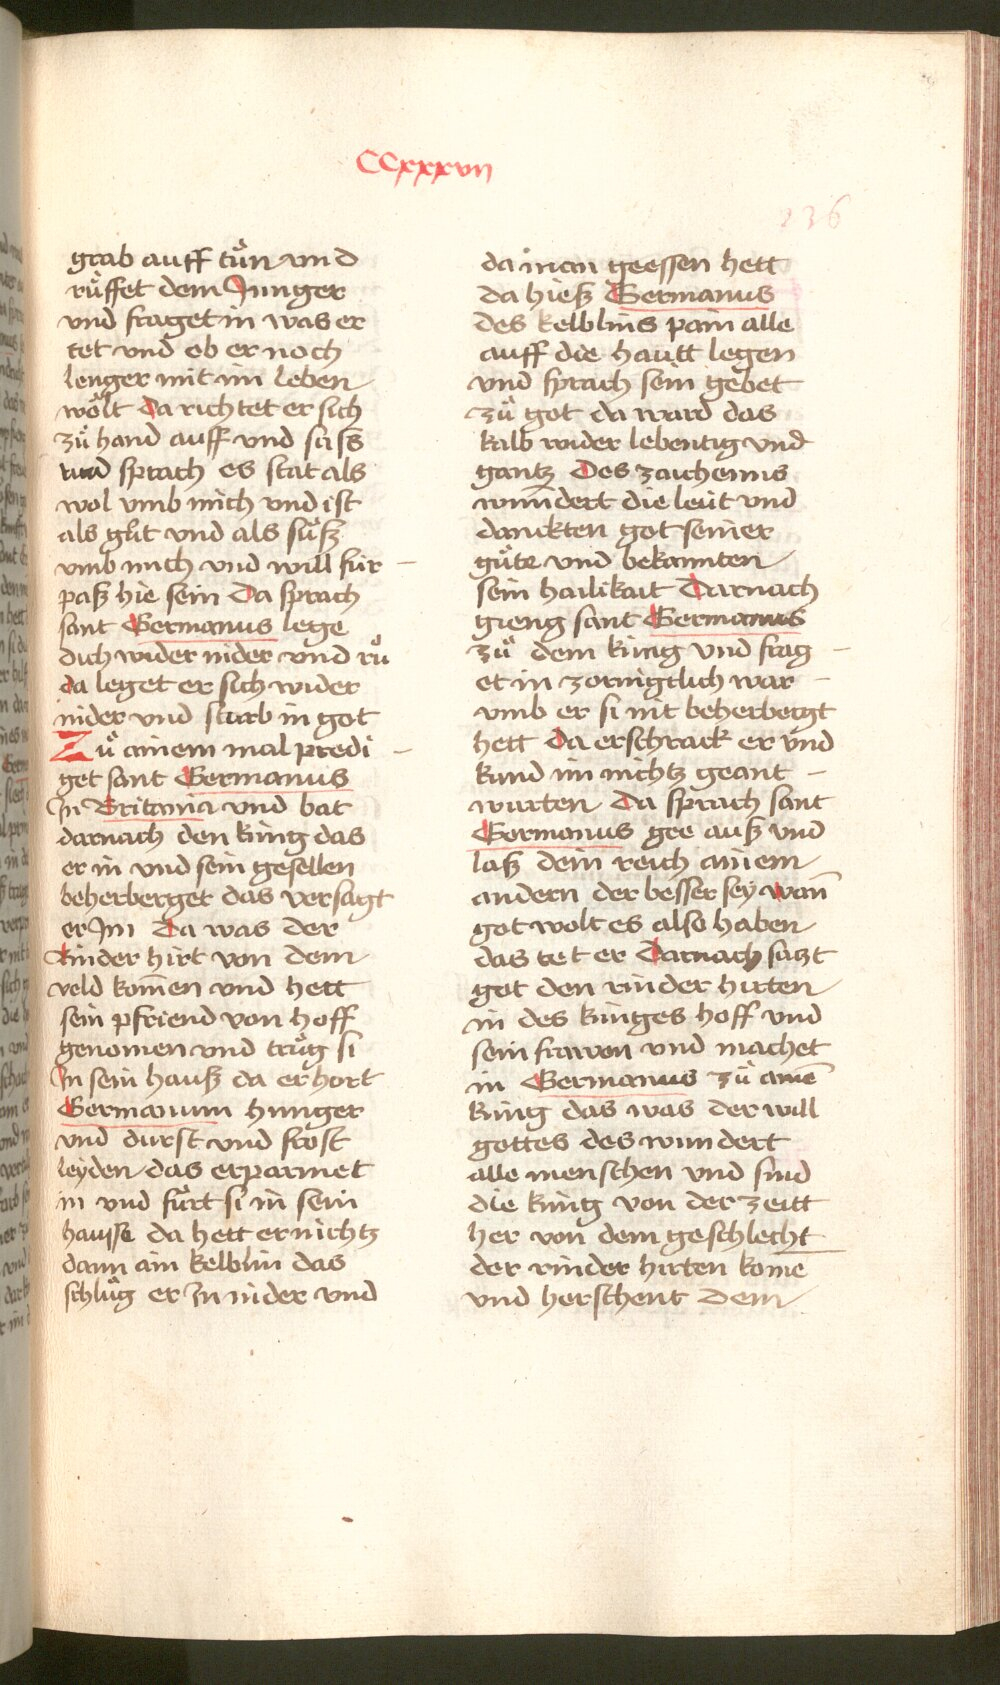 CCxxxvii
236
grab auff tuͤn vnd
ruͤffet dem Junger
vnd fraget in was er
tet vnd ob er noch
lenger mit im leben
woͤlt Da richtet er sich
zuͤ hand auff vnd sass
vnd sprach es stat als
wol vmb mich vnd ist
als guͤt vnd als suͤsz
vmb mich vnd will für –
pasz hie sein Da sprach
sant Germanus lege
dich wider nider vnd ruͤ
da leget er sich wider
nider vnd starb in got
Zuͤ ainem mal predi –
get sant Germanus
In Britania vnd bat
darnach den king das
er in vnd sein gesellen
beherberget das versagt
er Jm Da was der
Rinder hirt von dem
veld kom̄en vnd hett
sein pfriend von hoff
genomen vnd truͤg si
In sein hausz da er hort
Germanum hunger
vnd durst vnd frost
leyden das erparmet
in vnd fuͤrt si in sein
hausse da hett er nichtz
dann ain kelblin das
schluͤg er In nider vnd
da man geessen hett
da hiesz Germanus
des kelblins pain alle
auff die hautt legen
vnd sprach sein gebet
zuͤ got da ward das
kalb wider lebentig vnd
gantz Des zaichenns
wundert die leüt vnd
danckten got seiner
guͤte vnd bekannten
sein hailikait Darnach
gieng sant Germanus
zuͤ dem king vnd frag –
et in zornigklich war –
vmb er si nit beherbergt
hett Da erschrack er vnd
kund im nichtz geant –
wurten Da sprach sant
Germanus gee ausz vnd
lasz dein reich ainem
andern der besser sey wan̄
got wolt es also haben
das tet er Darnach satzt
got den rinder hirten
in des kinges hoff vnd
sein frawen vnd machet
in Germanus zuͤ ainē
king das was der will
gottes des wundert
alle menschen vnd sind
die king von der zeitt
her von dem geschlecht
der rinder hirten kome
vnd herschent dem